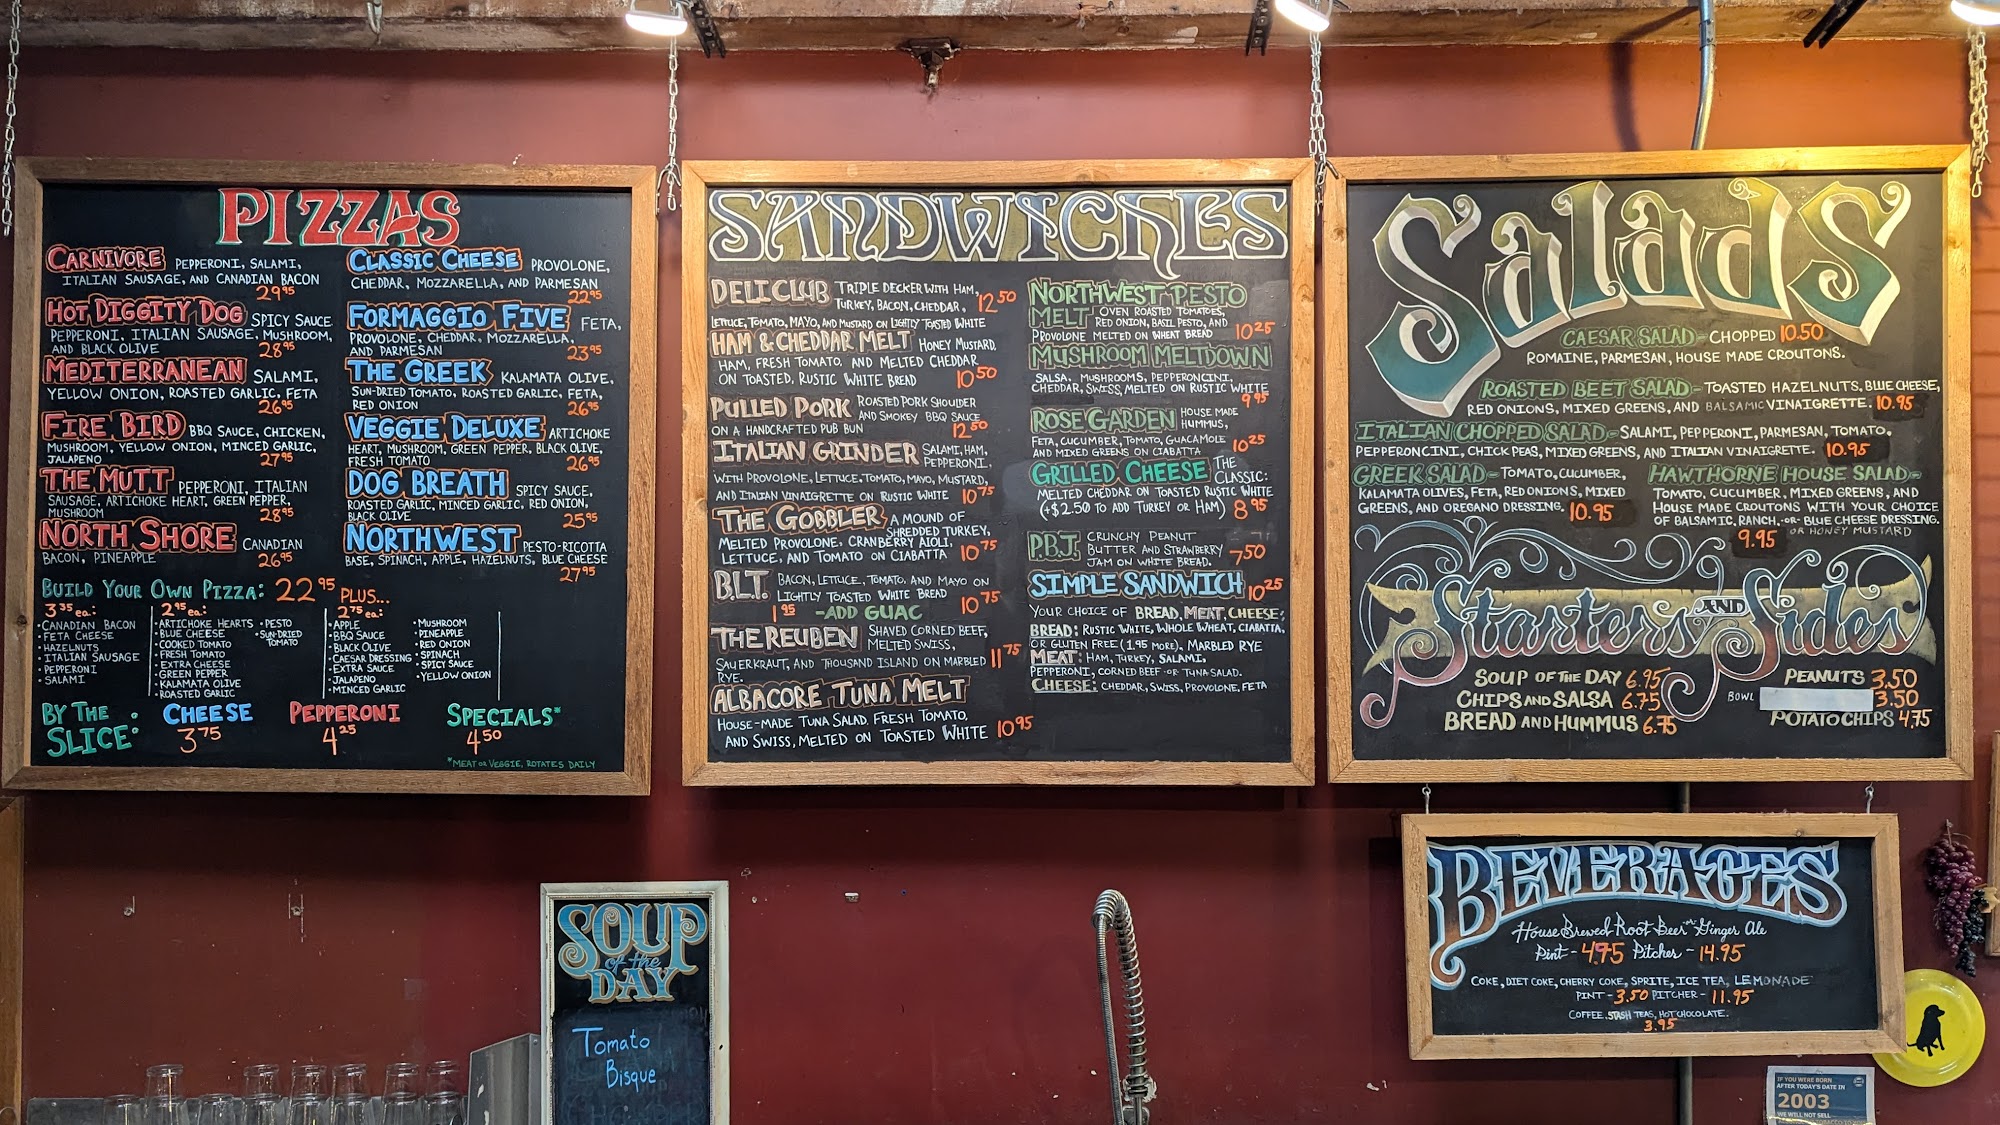 PIZZAS
CARNIVORE PEPPERONI, SALAMI,
ITALIAN SAUSAGE, AND CANADIAN BACON
29.95
HOT DIGGITY DOG SPICY SAUCE
PEPPERONI, ITALIAN SAUSAGE, MUSHROOM,
AND BLACK OLIVE 28.95
MEDITERRANEAN SALAMI,
YELLOW ONION, ROASTED GARLIC, FETA
26.95
FIRE BIRD BBQ SAUCE, CHICKEN,
MUSHROOM, YELLOW ONION, MINCED GARLIC,
JALAPENO 27.95
THE MUTT PEPPERONI, ITALIAN
SAUSAGE, ARTICHOKE HEART, GREEN PEPPER,
MUSHROOM 28.95
NORTH SHORE CANADIAN
BACON, PINEAPPLE 26.95
CLASSIC CHEESE PROVOLONE,
CHEDDAR, MOZZARELLA, AND PARMESAN
22.95
FORMAGGIO FIVE FETA,
PROVOLONE, CHEDDAR, MOZZARELLA,
AND PARMESAN 23.95
THE GREEK KALAMATA OLIVE,
SUN-DRIED TOMATO, ROASTED GARLIC, FETA,
RED ONION 26.95
VEGGIE DELUXE ARTICHOKE
HEART, MUSHROOM, GREEN PEPPER, BLACK OLIVE,
FRESH TOMATO 26.95
DOG BREATH SPICY SAUCE,
ROASTED GARLIC, MINCED GARLIC, RED ONION,
BLACK OLIVE 25.95
NORTHWEST PESTO-RICOTTA
BASE, SPINACH, APPLE, HAZELNUTS, BLUE CHEESE
27.95
BUILD YOUR OWN PIZZA: 22.95 PLUS...
3.35 ea:
• CANADIAN BACON
• FETA CHEESE
• HAZELNUTS
• ITALIAN SAUSAGE
• PEPPERONI
• SALAMI
2.95 ea:
• ARTICHOKE HEARTS
• BLUE CHEESE
• COOKED TOMATO
• FRESH TOMATO
• EXTRA CHEESE
• GREEN PEPPER
• KALAMATA OLIVE
• ROASTED GARLIC
• PESTO
• SUN-DRIED
TOMATO
2.75 ea:
• APPLE
• BBQ SAUCE
• BLACK OLIVE
• CAESAR DRESSING
• EXTRA SAUCE
• JALAPENO
• MINCED GARLIC
• MUSHROOM
• PINEAPPLE
• RED ONION
• SPINACH
• SPICY SAUCE
• YELLOW ONION
BY THE
SLICE:
CHEESE
3.75
PEPPERONI
4.25
SPECIALS*
4.50
*MEAT OR VEGGIE, ROTATES DAILY
SANDWICHES
DELI CLUB TRIPLE DECKER WITH HAM,
TURKEY, BACON, CHEDDAR, 12.50
LETTUCE, TOMATO, MAYO, AND MUSTARD ON LIGHTLY TOASTED WHITE
HAM & CHEDDAR MELT HONEY MUSTARD,
HAM, FRESH TOMATO, AND MELTED CHEDDAR
ON TOASTED, RUSTIC WHITE BREAD 10.50
PULLED PORK ROASTED PORK SHOULDER
AND SMOKEY BBQ SAUCE
ON A HANDCRAFTED PUB BUN 12.50
ITALIAN GRINDER SALAMI, HAM,
PEPPERONI,
WITH PROVOLONE, LETTUCE, TOMATO, MAYO, MUSTARD,
AND ITALIAN VINAIGRETTE ON RUSTIC WHITE 10.75
THE GOBBLER A MOUND OF
SHREDDED TURKEY,
MELTED PROVOLONE, CRANBERRY AIOLI,
LETTUCE, AND TOMATO ON CIABATTA 10.75
B.L.T. BACON, LETTUCE, TOMATO, AND MAYO ON
LIGHTLY TOASTED WHITE BREAD 10.75
1.95 -ADD GUAC
THE REUBEN SHAVED CORNED BEEF,
MELTED SWISS,
SAUERKRAUT, AND THOUSAND ISLAND ON MARBLED 11.75
RYE.
ALBACORE TUNA MELT
HOUSE-MADE TUNA SALAD, FRESH TOMATO,
AND SWISS, MELTED ON TOASTED WHITE 10.95
NORTHWEST PESTO
MELT OVEN ROASTED TOMATOES,
RED ONION, BASIL PESTO, AND
PROVOLONE MELTED ON WHEAT BREAD 10.25
MUSHROOM MELTDOWN
SALSA, MUSHROOMS, PEPPERONCINI,
CHEDDAR, SWISS, MELTED ON RUSTIC WHITE
9.95
ROSE GARDEN HOUSE MADE
HUMMUS,
FETA, CUCUMBER, TOMATO, GUACAMOLE
AND MIXED GREENS ON CIABATTA 10.25
GRILLED CHEESE THE
CLASSIC:
MELTED CHEDDAR ON TOASTED RUSTIC WHITE
(+$2.50 TO ADD TURKEY OR HAM) 8.95
P.B.J. CRUNCHY PEANUT
BUTTER AND STRAWBERRY
JAM ON WHITE BREAD. 7.50
SIMPLE SANDWICH 10.25
YOUR CHOICE OF BREAD, MEAT, CHEESE:
BREAD: RUSTIC WHITE, WHOLE WHEAT, CIABATTA,
OR GLUTEN FREE (1.95 MORE), MARBLED RYE
MEAT: HAM, TURKEY, SALAMI,
PEPPERONI, CORNED BEEF -OR- TUNA SALAD.
CHEESE: CHEDDAR, SWISS, PROVOLONE, FETA
Salads
CAESAR SALAD- CHOPPED 10.50
ROMAINE, PARMESAN, HOUSE MADE CROUTONS.
ROASTED BEET SALAD- TOASTED HAZELNUTS, BLUE CHEESE,
RED ONIONS, MIXED GREENS, AND BALSAMIC VINAIGRETTE. 10.95
ITALIAN CHOPPED SALAD- SALAMI, PEPPERONI, PARMESAN, TOMATO,
PEPPERONCINI, CHICK PEAS, MIXED GREENS, AND ITALIAN VINAIGRETTE. 10.95
GREEK SALAD- TOMATO, CUCUMBER,
KALAMATA OLIVES, FETA, RED ONIONS, MIXED
GREENS, AND OREGANO DRESSING. 10.95
HAWTHORNE HOUSE SALAD-
TOMATO, CUCUMBER, MIXED GREENS, AND
HOUSE MADE CROUTONS WITH YOUR CHOICE
OF BALSAMIC, RANCH, -OR- BLUE CHEESE DRESSING.
9.95 OR HONEY MUSTARD
Starters AND Sides
SOUP OF THE DAY 6.95
CHIPS AND SALSA 6.75
BREAD AND HUMMUS 6.75
PEANUTS 3.50
BOWL 3.50
POTATO CHIPS 4.75
BEVERAGES
House Brewed Root Beer -or- Ginger Ale
Pint - 4.95 Pitcher - 14.95
COKE, DIET COKE, CHERRY COKE, SPRITE, ICE TEA, LEMONADE
PINT - 3.50 PITCHER - 11.95
COFFEE, STASH TEAS, HOT CHOCOLATE.
3.95
SOUP
of the
DAY
Tomato
Bisque
IF YOU WERE BORN
AFTER TODAY'S DATE IN
2003
WE WILL NOT SELL